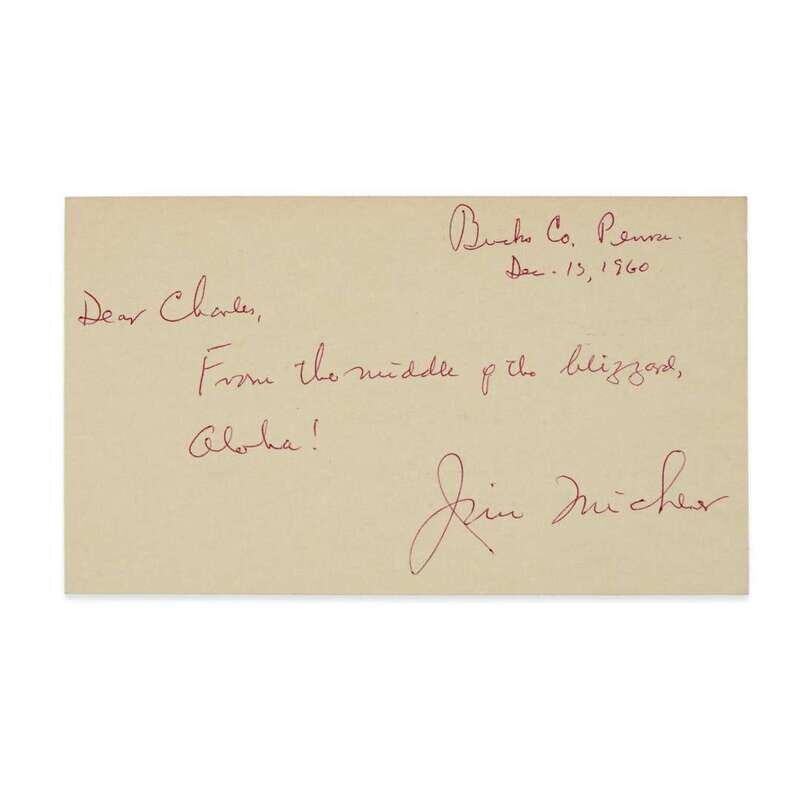 Bucks Co. Penna.
Dec. 13, 1960
Dear Charles,
From the middle of the blizzard,
Aloha!
Jim Michener